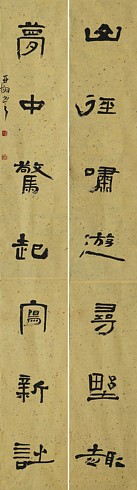 山徑嘯遊尋野趣
夢中驚起寫新詩